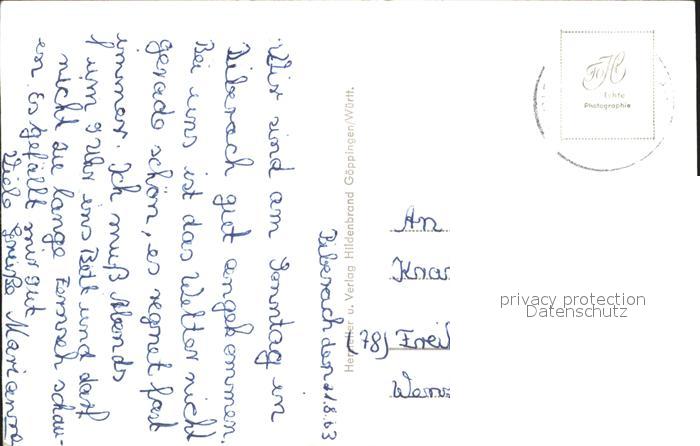 Biberach den 21.8.63
Wir sind am Sonntag in
Biberach gut angekommen.
Bei uns ist das Wetter nicht
gerade schön, es regnet fast
immer. Ich muß Abends
um 9 Uhr ins Bett und darf
nicht so lange Fernseh schau-
en. Es gefällt mir gut
Viele Grüße Marianne
Hersteller u. Verlag Hildenbrand Göppingen/Württ.
Echte
Photographie
An
(78)
privacy protection
Datenschutz